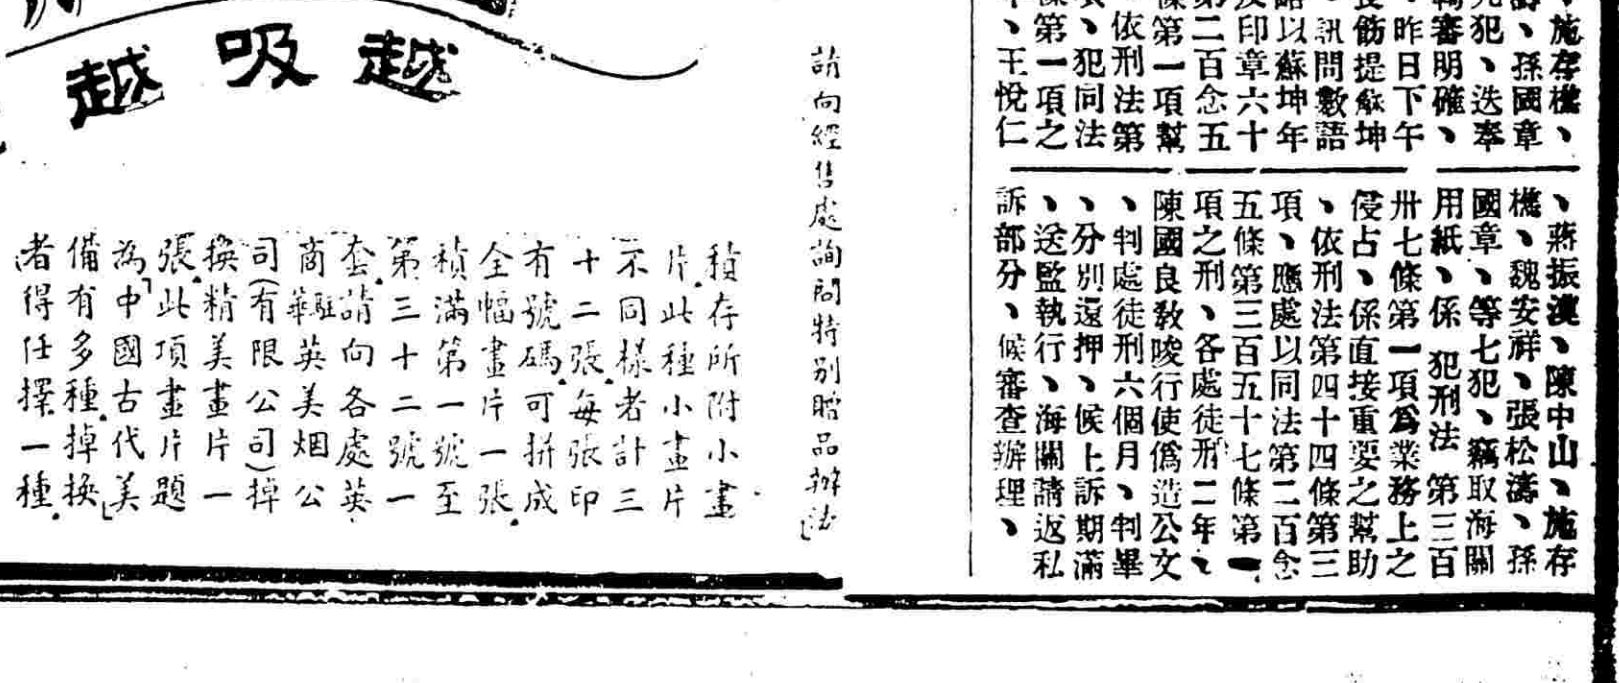 、施存樵、
濤、孫國章
犯、迭奉
審明確、
昨日下午
飭提蘇坤
訊問數語
以蘇坤年
印章六十
第二百念五
條第一項幫
依刑法第
、犯同法
條第一項之
、王悅仁
、蔣振漢、陳中山、施存
樵、魏安祥、張松濤、孫
國章、等七犯、竊取海關
用紙、係 犯刑法 第三百
卅七條第一項爲業務上之
侵占、係直接重要之幫助
、依刑法第四十四條第三
項、應處以同法第二百念
五條第三百五十七條第一
項之刑、各處徒刑二年、
陳國良教唆行使僞造公文
、判處徒刑六個月、判畢
、分別還押、候上訴期滿
、送監執行、海關請返私
訴部分、候審查辦理、
越吸越
請向經售處詢問特別贈品辦法
積存所附小畫
片。此種小畫片
不同樣者計三
十二張。每張印
有號碼。可拼成
全幅畫片一張。
積滿第一號至
第三十二號一
套。請向各處英
商駐華英美烟公
司(有限公司)掉
換精美畫片一
張。此項畫片題
為「中國古代美」
備有多種。掉換
者得任擇一種。